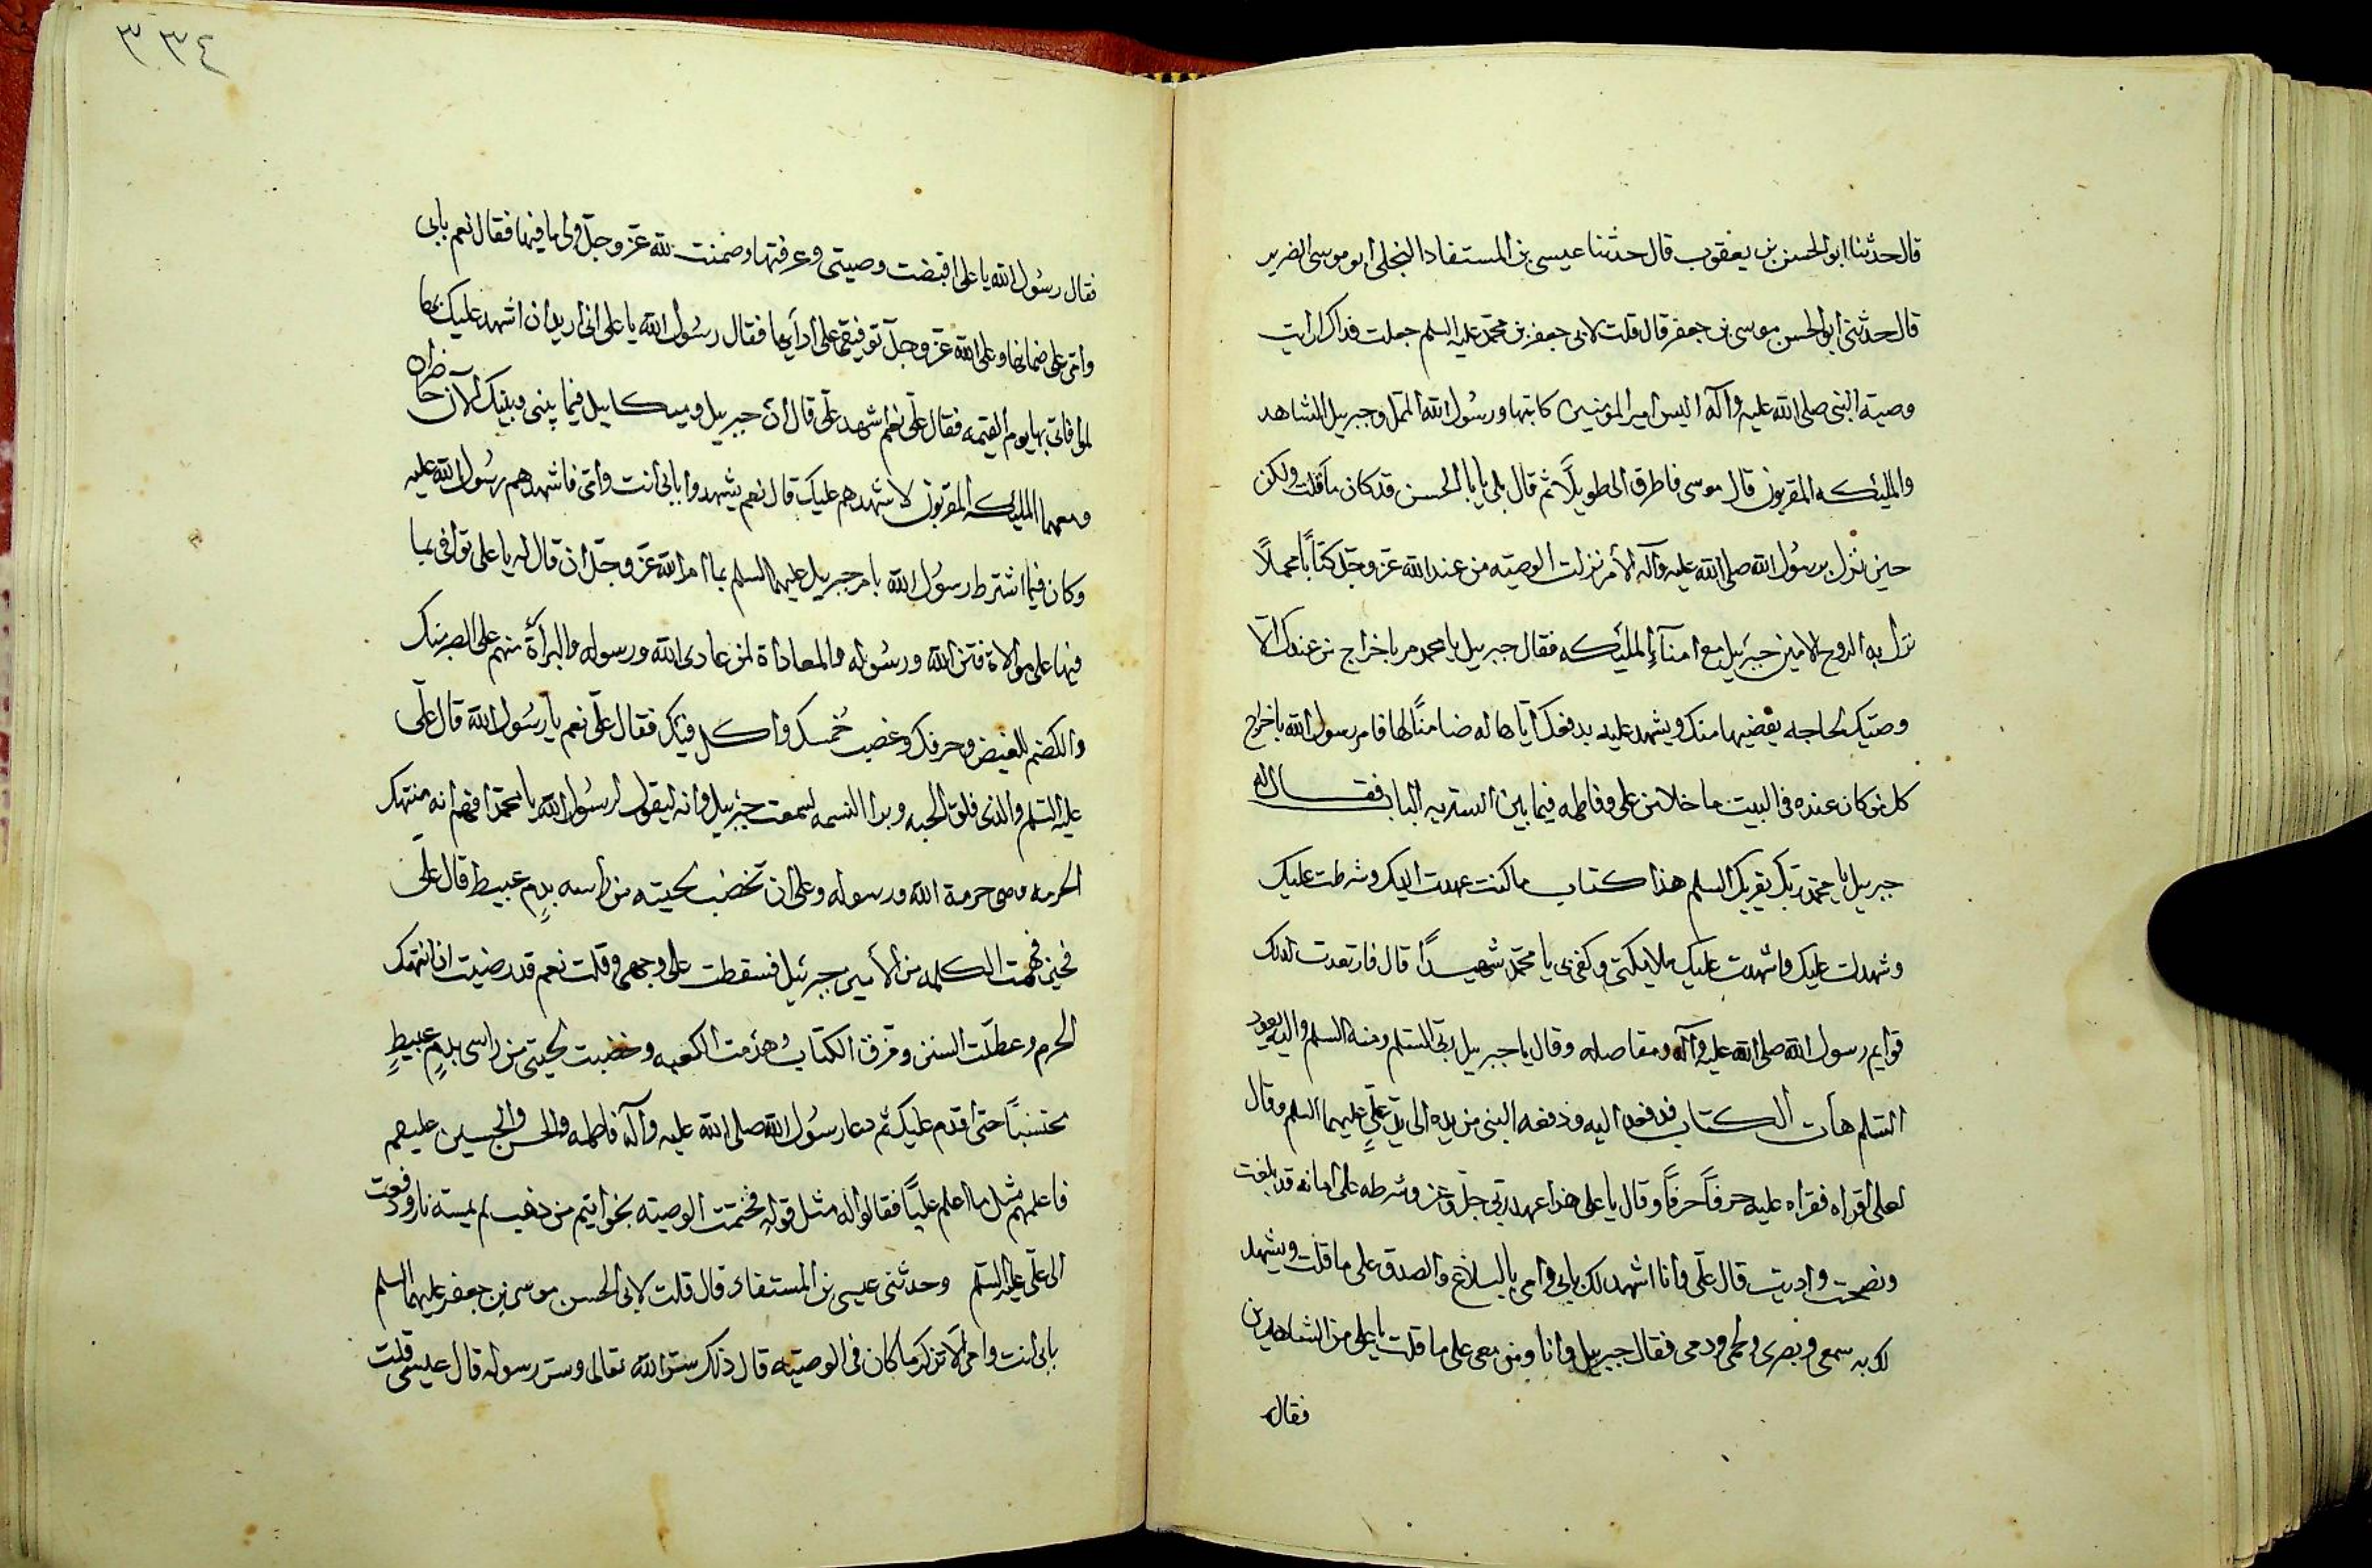 قال حدثنا ابو الحسن بن يعقوب قال حدثنا عيسى بن المستفاد البجلي ابو موسى الضرير
قال حدثني ابو الحسن موسى بن جعفر قال قلت لابي جعفر بن محمد عليه السلم جعلت فداك ارايت
وصية النبي صلى الله عليه وآله اليس امير المؤمنين كاتبها ورسول الله الممل وجبريل الشاهد
والمليكه المقربون قال موسى فاطرق الي طويلاً ثم قال بلى يا با الحسن قد كان ما قلت ولكن
حين نزل برسول الله صلى الله عليه وآله الأمر نزلت الوصيته من عند الله عزّ وجلّ كتاباً
نزل به الروح الامين جبرئيل مع امنآء المليكه فقال جبريل يا محمد مر باخراج من عندك الّا
وصيّك لحاجه يقضيها منك ويشهد عليه بدفعك اياها له ضامناً لها فامر رسول الله باخراج
كل من كان عنده في البيت ما خلا من على وفاطمه فيما بين الستر الباب فقال له
جبريل يا محمد ربّك يقريك السلم هذا كتاب ما كنت عهدت اليك وشرطت عليك
وشهدت عليك واشهدت عليك ملايكتي وكفى بي يا محمّد شهيداً قال فارتعدت لذلك
قوايم رسول الله صلى الله عليه وآله ومفاصله وقال يا جبريل ربّي السّلم ومنه السلم واليه يعود
السّلم هات الكتاب فدفعه اليه ودفعه النبي من يده الى يد عليٍّ عليهما السلم وقال
لعلي اقراه فقراه عليه حرفاً حرفاً وقال يا على هذا عهد ربّي جلّ وعز وشرطه على امانه قد بلغت
ونصحت واديت قال علّى وانا اشهد لك بابي وامي بالبلاغ والصدق على ما قلت ويشهد
لك به سمعي وبصرى ولحمي ودمى فقال جبريل وانا ومن معى على ما قلت يا علي من الشاهدين
فقال
٣٣٤
فقال رسُول الله يا على اقبضت وصيتى وعرفتها وضمنت لله عزّ وجلّ ولي ما فيها فقال نعم بابى
وامّى على ضمانها وعلى الله عزّ وجلّ توفيقى على ادآيها فقال رسُول الله يا على انى اريد ان اشهد عليك
لموافاتي بها يوم القيمه فقال علّى نعم اشهد علّى قال انّ جبريل وميكاييل فيما بينى وبينك الآن حاضران
ومعهما المليكه المقربون لاشهدهم عليك قال نعم يشهدوا بابي انت وامّى فاشهدهم رسُول الله عليه
وكان فيما اشترط رسُول الله بامر جبريل عليهما السلم بما امر الله عزّ وجلّ ان قال له يا على توافى بما
فيها على موالاة من الله ورسُوله والمعاداة لمن عادى الله ورسوله والبرآءة منهم على الصبر منك
والكضم للغيض وحرفك وغصب خُمسك واكل فيئك فقال علّى نعم يا رسُول الله قال علّى
عليه السّلم والذي فلق الحبه وبرا النسمه لسمعت جبرئيل وانه ليقول لرسُول الله يا محمّد افهم انه منتهك
الحرمه وهى حرمة الله ورسوله وعلى ان تخضب لحيته من راسه بدمٍ عبيط قال علّى
فحين فهمت الكلمه من الأمين جبرئيل فسقطت على وجهى وقلت نعم قد رضيت ان انتهك
الحرم وعطلّت السنن ومزق الكتاب وهدّمت الكعبه وخضبت لحيتى من راسى بدمٍ عبيطٍ
محتسباً حتى اقدم عليك ثم دعا رسُول الله صلى الله عليه وآله فاطمه والحسن والحسين عليهم
فاعلمهم مثل ما اعلم عليّاً فقالوا له مثل قوله فختمت الوصيته بخواتيم من ذهب لم يمسّه نار ودفعت
الى علّى عليه السّلم وحدثنى عيسى بن المستفاد قال قلت لابى الحسن موسى بن جعفر عليهما السلم
بابى انت وامى الّا تذكر ما كان فى الوصيته قال ذلك سرّ الله تعالى وسرّ رسوله قال عيسى قلت